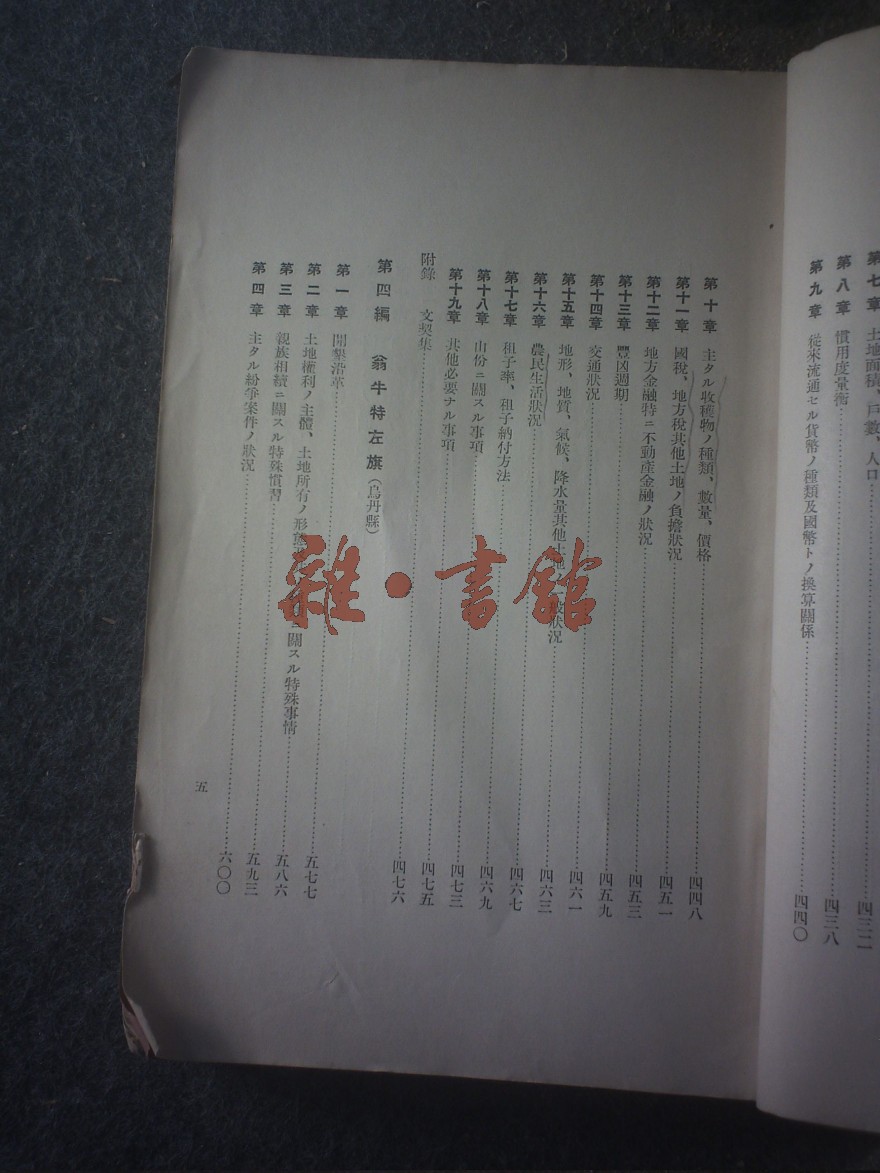 第七章 土地面積、戶數、人口 四三二
第八章 慣用度量衡 四三八
第九章 從來流通セル貨幣ノ種類及國幣トノ換算關係 四四〇
第十章 主タル收穫物ノ種類、數量、價格 四四八
第十一章 國稅、地方稅其他土地ノ負擔狀況 四五一
第十二章 地方金融特ニ不動產金融ノ狀況 四五三
第十三章 豐凶週期 四五九
第十四章 交通狀況 四六一
第十五章 地形、地質、氣候、降水量其他土地 狀況 四六三
第十六章 農民生活狀況 四六七
第十七章 租子率、租子納付方法 四六九
第十八章 山份ニ關スル事項 四七三
第十九章 其他必要ナル事項 四七五
附錄 文契集 四七六
第四編 翁牛特左旗（烏丹縣）
第一章 開墾沿革 五七七
第二章 土地權利ノ主體、土地所有ノ形態 ニ關スル特殊事情 五八六
第三章 親族相續ニ關スル特殊慣習 五九三
第四章 主タル紛爭案件ノ狀況 六〇〇
五
雜·書館